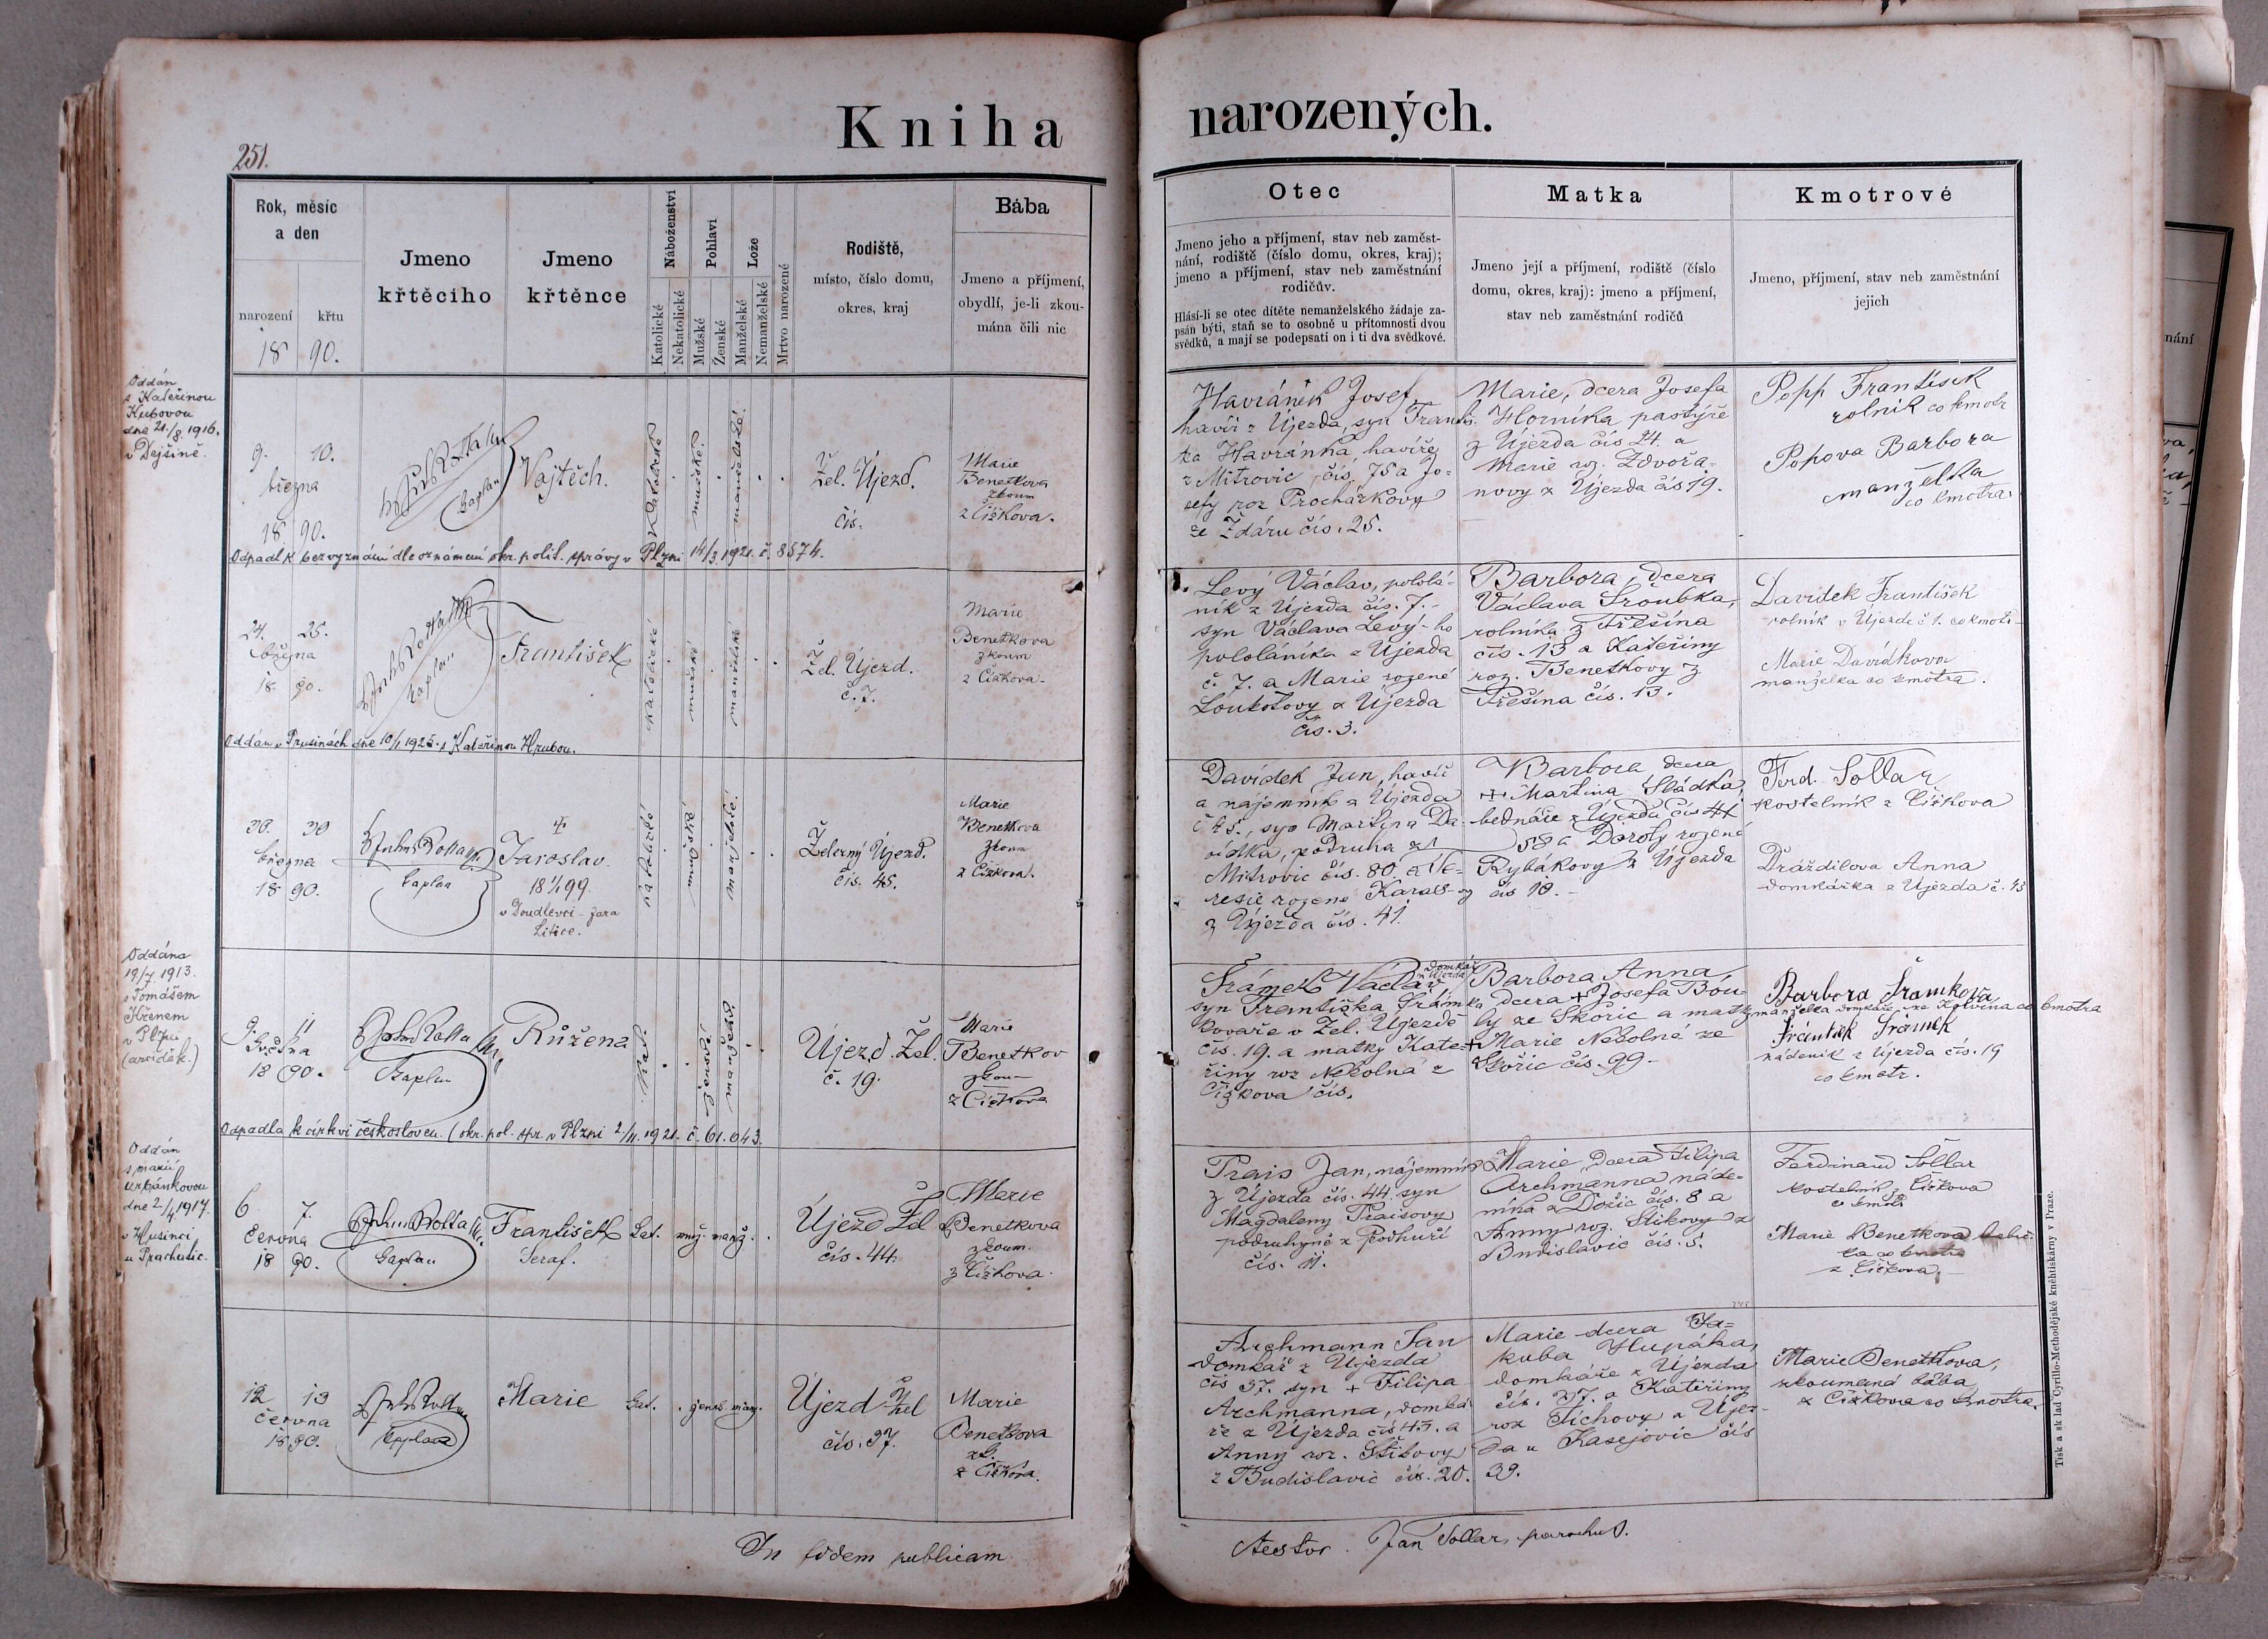 Kniha narozených.
251.
Rok, měsíc
a den
narození
křtu
18 90.
Jmeno
křtěcího
Jmeno
křtěnce
Náboženství
Katolické
Nekatolické
Pohlaví
Mužské
Ženské
Lože
Manželské
Nemanželské
Mrtvo narozené
Rodiště,
místo, číslo domu,
okres, kraj
Bába
Jmeno a příjmení,
obydlí, je-li zkou-
mána čili nic
Otec
Jmeno jeho a příjmení, stav neb zaměst-
nání, rodiště (číslo domu, okres, kraj);
jmeno a příjmení, stav neb zaměstnání
rodičův.
Hlásí-li se otec dítěte nemanželského žádaje za-
psán býti, staň se to osobně u přítomnosti dvou
svědků, a mají se podepsati on i ti dva svědkové.
Matka
Jmeno její a příjmení, rodiště (číslo
domu, okres, kraj): jmeno a příjmení,
stav neb zaměstnání rodičů
Kmotrové
Jmeno, příjmení, stav neb zaměstnání
jejich
Oddán
s Kateřinou
Kubovou
dne 21./8. 1916.
v Dejšině.
9. 10.
března
18 90.
kaplan
Vojtěch.
katolické
mužské
manželské
Žel. Újezd.
čís.
Marie
Benetkova
zkoum
z Čížkova.
Havránek Josef
havíř z Újezda, syn Franti-
ka Havránka, havíře
z Mitrovic, čís. 75 a Jo-
sefy roz Procházkovy
ze Žďáru čís. 25.
Marie, dcera Josefa
Horníka pastýře
z Újezda čís 24. a
Marie roz. Zdvořa-
novy z Újezda čís 19.
Popp František
rolník co kmotr
Popova Barbora
manželka
co kmotra
Odpadl k bezvyznání dle oznámení okr. polit. správy v Plzni 14/3. 1921. č. 8574.
24. 25.
března
18 90.
kaplan
František
katolické
mužské
manželské
Žel. Újezd.
č. 7.
Marie
Benetkova
zkoum
z Čížkova.
Levý Václav, pololá-
ník z Újezda čís. 7.
syn Václava Levý-ho
pololáníka z Újezda
č. 7. a Marie rozené
Loukotovy z Újezda
čís. 3.
Barbora, dcera
Václava Šroubka,
rolníka z Třešina
čís. 13 a Kateřiny
roz. Benetkovy z
Třešina čís. 13.
Davidek František
rolník v Újezdě č 1. co kmotr
Marie Davídkova
manželka co kmotra.
Oddán v Prusinách dne 10/1 1925. s Kateřinou Hrubou.
30. 30
března
18 90.
kaplan
Jaroslav
18 99.
v Doudlevci - fara
Litice.
katolické
manželské
Železný Újezd.
čís. 45.
Marie
Benetkova
zkoum
z Čížkova.
Davídek Jan, havíř
a nájemník z Újezda
č 45., syn Martina Da-
vídka, podruha z
Mitrovic čís. 80. a Te-
resie rozené
z Újezda čís. 41.
Barbora dcera
Martina Sládka,
bednáře z Újezda čís
58 a Doroty rozené
Rybákovy z Újezda
čís 10.
Ferd. Sollar
kostelník z Čížkova
Drážďilova Anna
domkářka z Újezda č. 43
Oddána
19/7. 1913.
s Tomášem
Křenem
v Plzni
(arciděk.)
9. 11
18 90.
kaplan
Růžena
kat.
ženské
manželské
Újezd Žel.
č. 19.
Marie
Benetkov
zkou-
z Čížkova
Šrámek Václav, domkář
z Újezda
syn Františka Šrámka
kováře v Žel. Újezdě
čís. 19. a matky Kate-
řiny roz Nekolná z
Čížkova čís.
Barbora Anna,
dcera + Josefa Bou-
ly ze Skořic a matky
+ Marie Nekolné ze
Skořic čís. 99.
Barbora Šramkova
manželka domkáře co kmotra
František Šrámek
nádeník z Újezda čís. 19
co kmotr.
Odpadla k církvi českosloven. (okr. pol. spr. v Plzni 2./11. 1921. č. 61.043.
Oddán
s Marií
Urbánkovou
dne 2./4. 1917.
v Husinci
u Prachatic.
6 7.
června
18 90.
Kaplan
František
Seraf.
kat.
muž.
manž.
Újezd Žel
čís. 44.
Marie
Benetkova
zkoum.
z Čížkova.
Prais Jan, nájemník
z Újezda čís. 44. syn
Magdaleny Praisovy
podruhyně z Podhuří
čís. 11.
Marie, dcera Filipa
Archmanna, náde-
níka z Dožic čís. 8 a
Anny roz. Štikovy z
Budislavic čís. 5.
Ferdinand Sollar
kostelník z Čížkova
co kmotr
Marie Benetkova babič-
ka co kmotra
z Čížkova.
12 13
června
18 90.
Kaplan
Marie
kat.
žensk.
manž.
Újezd Žel
čís. 37.
Marie
Benetkova
zk.
z Čížkova.
Archmann Jan
domkář z Újezda
čís 37. syn + Filipa
Archmanna, domká-
ře z Újezda čís 43. a
Anny roz. Štikovy
z Budislavic čís. 20.
Marie dcera Ja-
kuba Hupáka,
domkáře z Újezda
čís. 37. a Kateřiny
roz Tichovy z Újez-
da u Kasejovic čís
39.
Marie Benetkova,
zkoumaná bába
z Čížkova co kmotra.
In fidem publicam
Testor. Jan Sollar, parochus.
Tisk a sklad Cyrillo-Methodějské kněhtiskárny v Praze.